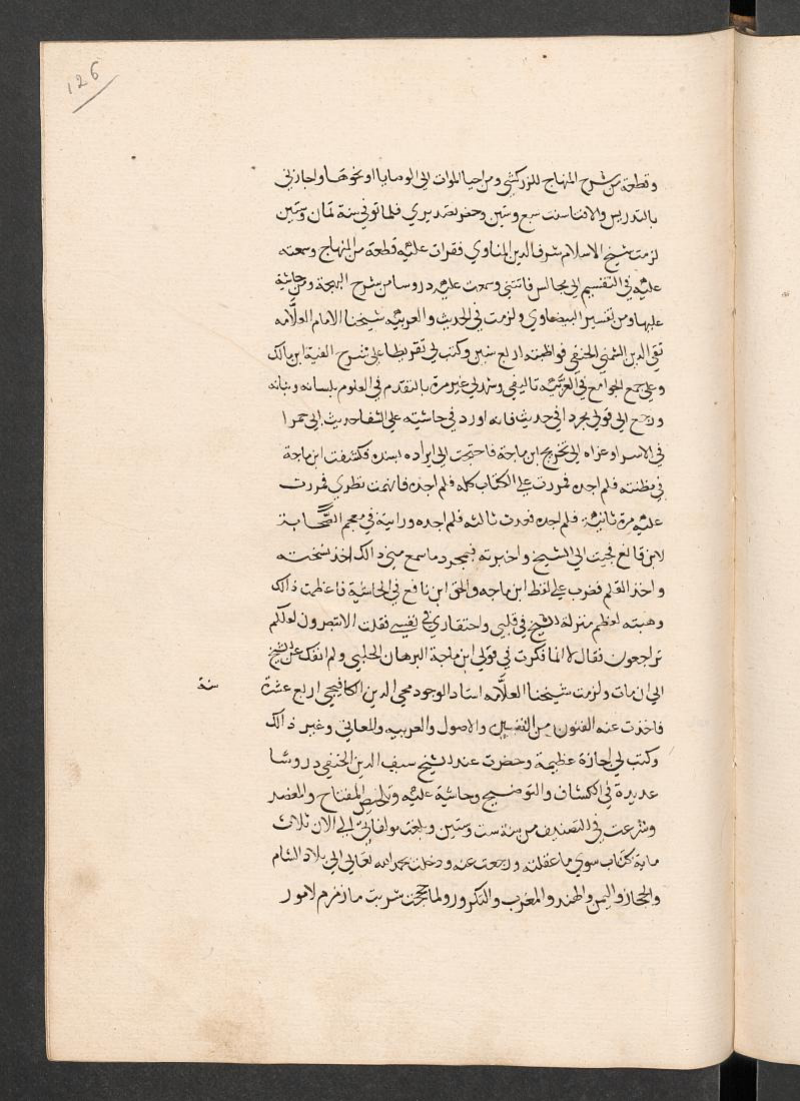 126
وقطعة من شرح المنهاج للزركشي ومن احيا الموات الى الوصايا او نحوها واجازني
بالتدريس والافتا سنت سبع وستين وحضر تصديري فلما توفي سنة ثمان وستين
لزمت شيخ الاسلام شرف الدين المناوي فقرات عليه قطعة من المنهاج وسمعته
عليه في التقسيم الى مجالس فاتتني وسمعت عليه دروسا من شرح البهجة ومن حاشية
عليها ومن تفسير البيضاوي ولزمت في الحديث والعربيه شيخنا الامام العلّامه
تقي الدين الشمني الحنفي فواظبته اربع سنين وكتب لي تقريظا على شرح الفية ابن مالك
وعلى جمع الجوامع في العربيّه تاليفي وشهد لي غير مرة بالتقدم في العلوم بلسانه وبنانه
ورجع الى قولي مجردا في حديث فانه اورد في حاشيته على الشفا حديث ابى حمرا
في الاسرا وعزاه الى تخريج ابن ماجة فاحتجت الى ايراده بسنده فكشفت ابن ماجة
في مظنته فلم اجده فمررت على الكتاب كله فلم اجده فاتهمت نظري فمررت
عليه مرة ثانية فلم اجده فعدت ثالثه فلم اجده ورايته في معجم الصّحابة
لابن قانع فجيت الى الشيخ واخبرته فبمجرد ما سمع منى ذالك اخذ نسخته
واخذ القلم فضرب على لفظ ابن ماجه والحق ابن نافع في الحاشية فاعظمت ذالك
وهبته لعظم منزلة الشيخ في قلبي واحتقاري في نفسي فقلت الا تتصبرون لعلكم
تراجعون فقال لا انما فكرت في قولي ابن ماجة البرهان الحلبي ولم انفك عن الشيخ
الى ان مات ولزمت شيخنا العلّامه استاد الوجود محي الدين الكافيجي اربع عشرة سنة
فاخذت عنه الفنون من التفسير والاصول والعربيه والمعاني وغير ذالك
وكتب لي اجازة عظيمة وحضرت عند الشيخ سيف الدين الحنفي دروسا
عديدة في الكشاف والتوضيح وحاشية عليه وتلخيص المفتاح والعضد
وشرعت في التصنيف من سنة ست وستين وبلغت مولفاتي الى الان ثلاث
ماية كتاب سوى ما غسلته ورجعت عنه ودخلت بحمد الله تعالى الى بلاد الشام
والحجاز واليمن والهند والمغرب والتكرور ولما حججت شربت ما زمزم لامور